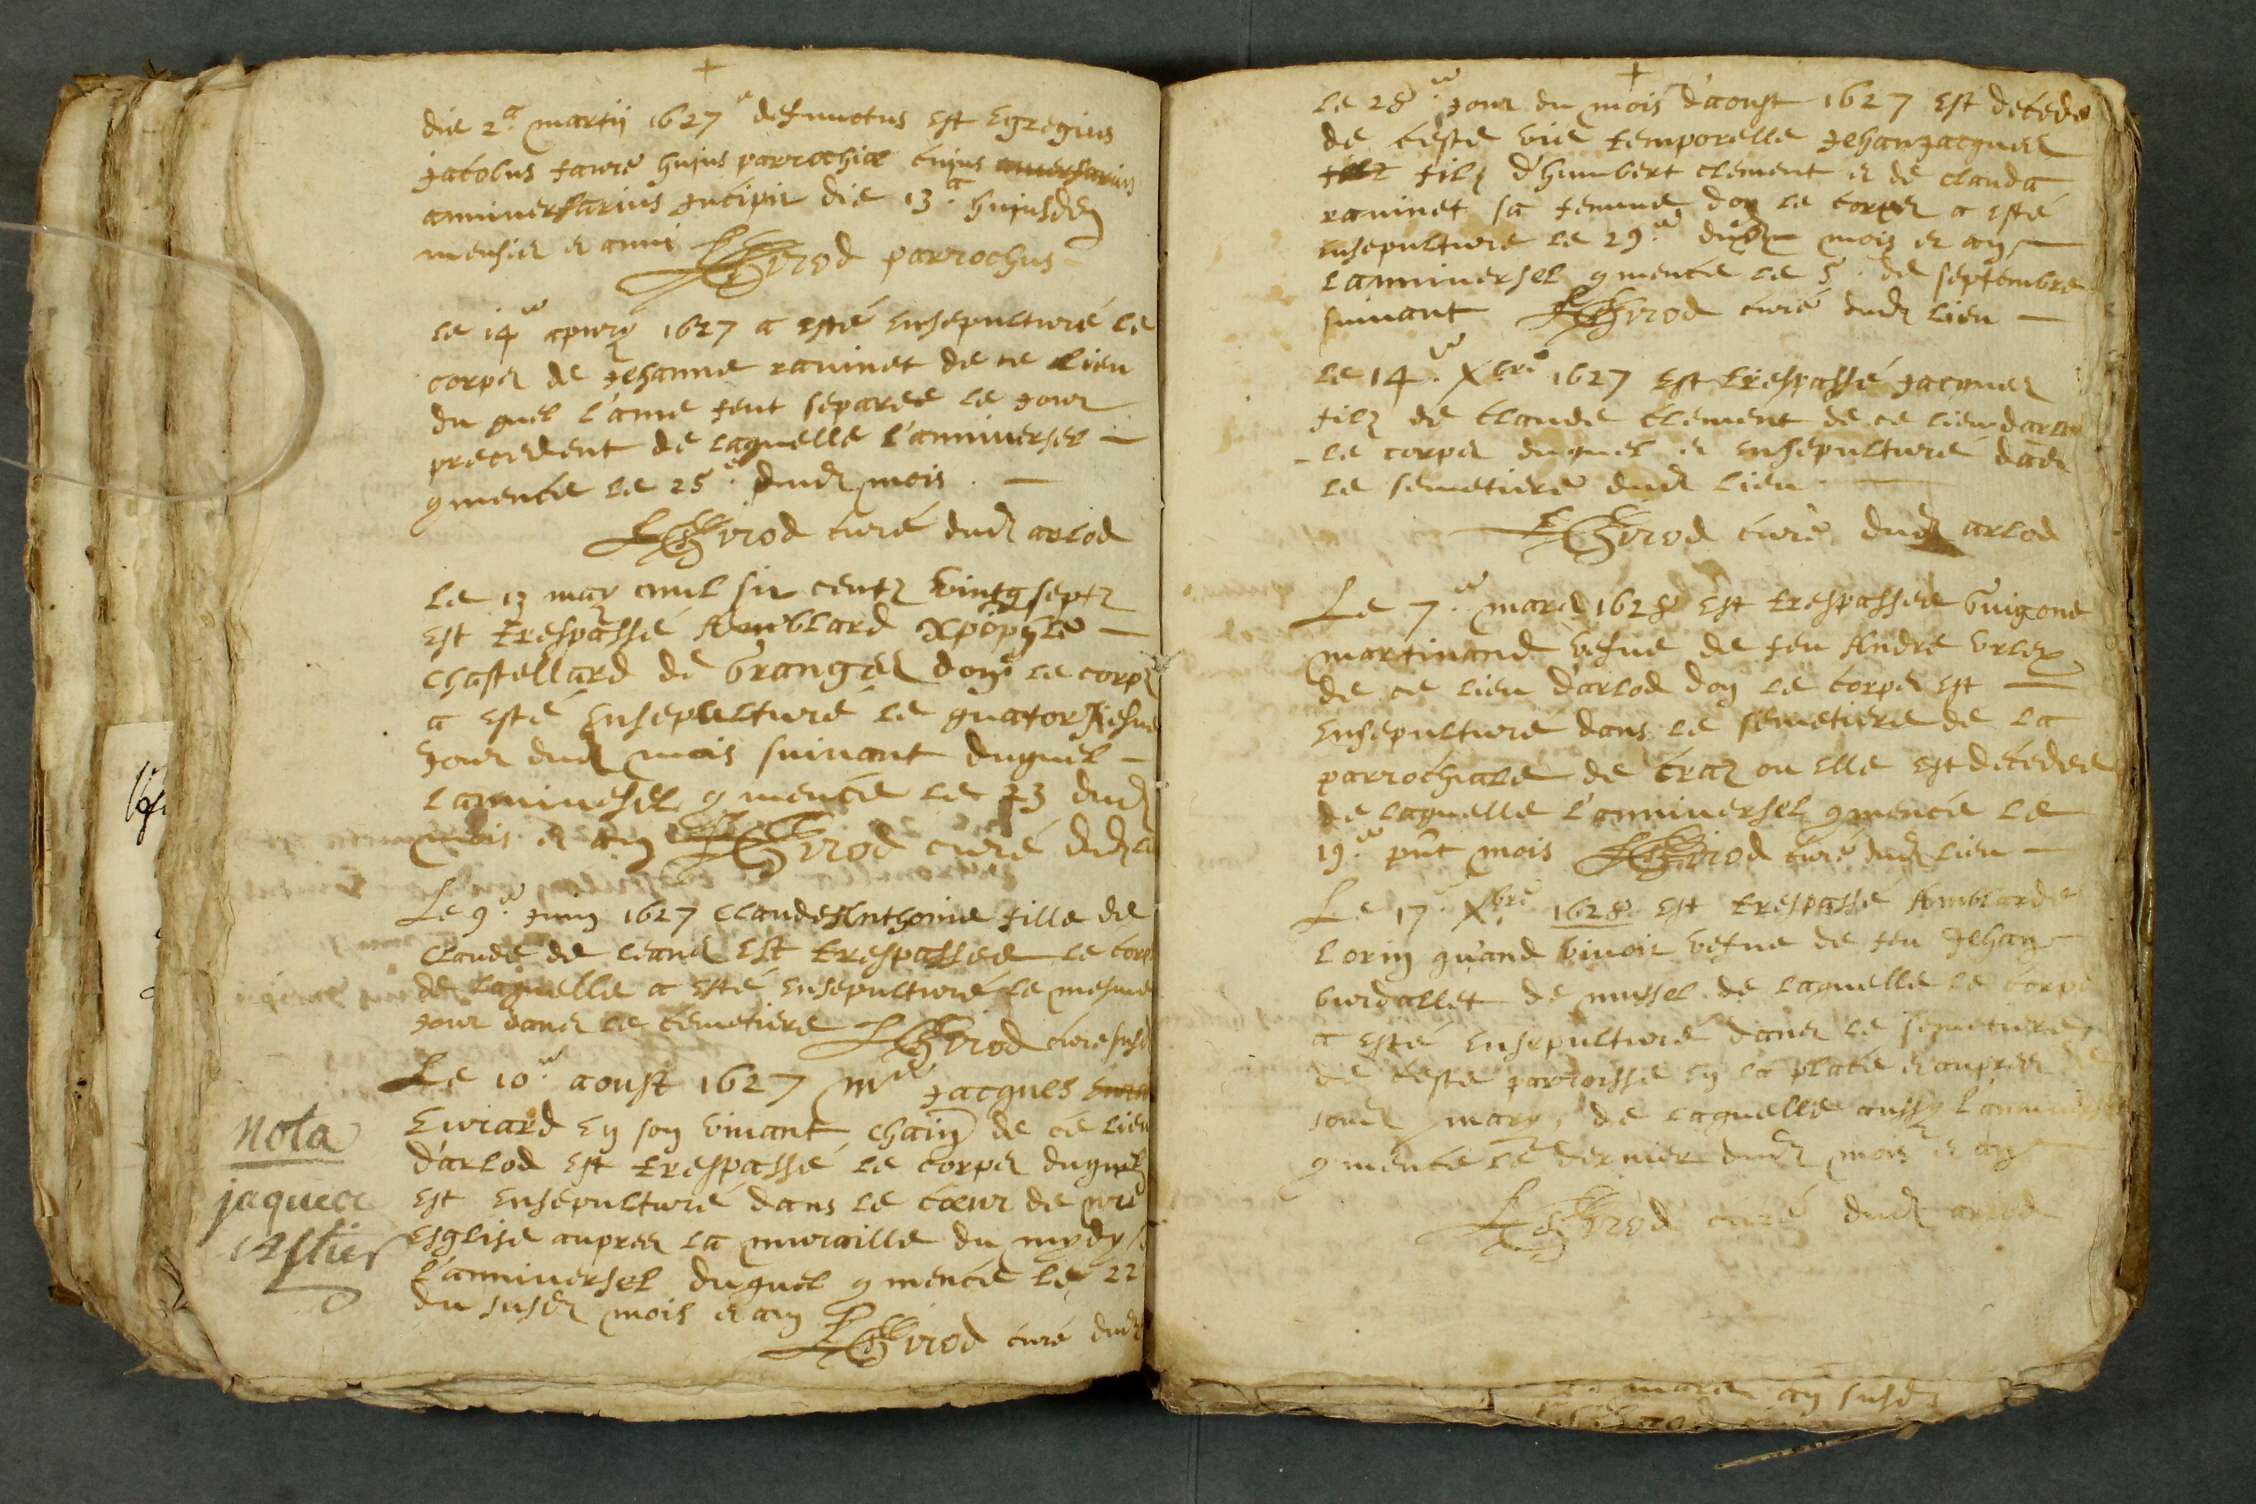 die 2a martij 1627 defunctus est Egregius
Jacobus favre hujus parrochiæ cujus
anniversarius Incipit die 13a hujusdem
mensis et anni Girod parrochus
Le 14e apvril 1627 a esté ensepulturé le
corps de Jehanne ravinet de ce lieu
du quel l'ame feut separee le jour
precedent de laquelle l'anniversel
9mence le 25e dud mois
Girod curé dud arlod
Le 13 may mil six centz vintg septz
est trespassé Amblard xpople
Chastellard de Granges don le corps
a esté ensepulturé le quatorziesme
jour dud mois suivant duquel
l'annivesel 9mence le 23 dud
mois et an Girod curé dud
Le 9e juin 1627 Claude Anthoine fille de
Claude de Leand est trespassee le corps
de laquelle a esté ensepulturé le mesme
jour dans le cemetiere Girod curé susd
Le 10e aoust 1627 Mre Jacques
Evrard en son vivant chain de ce lieu
d'arlod est trespassé le corps duquel
est ensepulturé dans le cœur de nre
esglise aupres la muraille du mydy
l'anniversel duquel 9mence le 22
du susd mois et an
Girod curé dud
Nota
jaques
le 28e jour du mois d'aoust 1627 est decede
de ceste vie temporelle Jehan Jacques
filz d'humbert clement et de clauda
ravinet sa femme don le corps a esté
ensepulturé le 29e dud mois et an
l'anniversel 9mence le 5 de septembre
suivant Girod curé dud lieu
Le 14e Xbre 1627 est trespassé Jacques
filz de Claude Clement de ce lieu d'arlod
le corps duquel et ensepulturé dans
le semetiere dud lieu
Girod curé dud arlod
Le 7e mars 1628 est trespassee Guigone
martinand vefve de feu André
de ce lieu d'arlod don le corps est
ensepulturé dans le semetiere de la
parrochiale de craz ou elle est decedee
de laquelle l'anniversel 9mence le
19e pnt mois Girod curé dud lieu
Le 17e Xbre 1628 est trespassé Amblarde
Lorin quand vivoit vefve de feu Jehan
burdallet de mussel de laquelle le corps
a esté ensepulturé dans le semetiere
de ceste parroisse en la place et aupres de
son mary, de laquelle aussy l'anniversel
9mence le dernier dud mois et an
Girod curé dud arlod
mars an susd